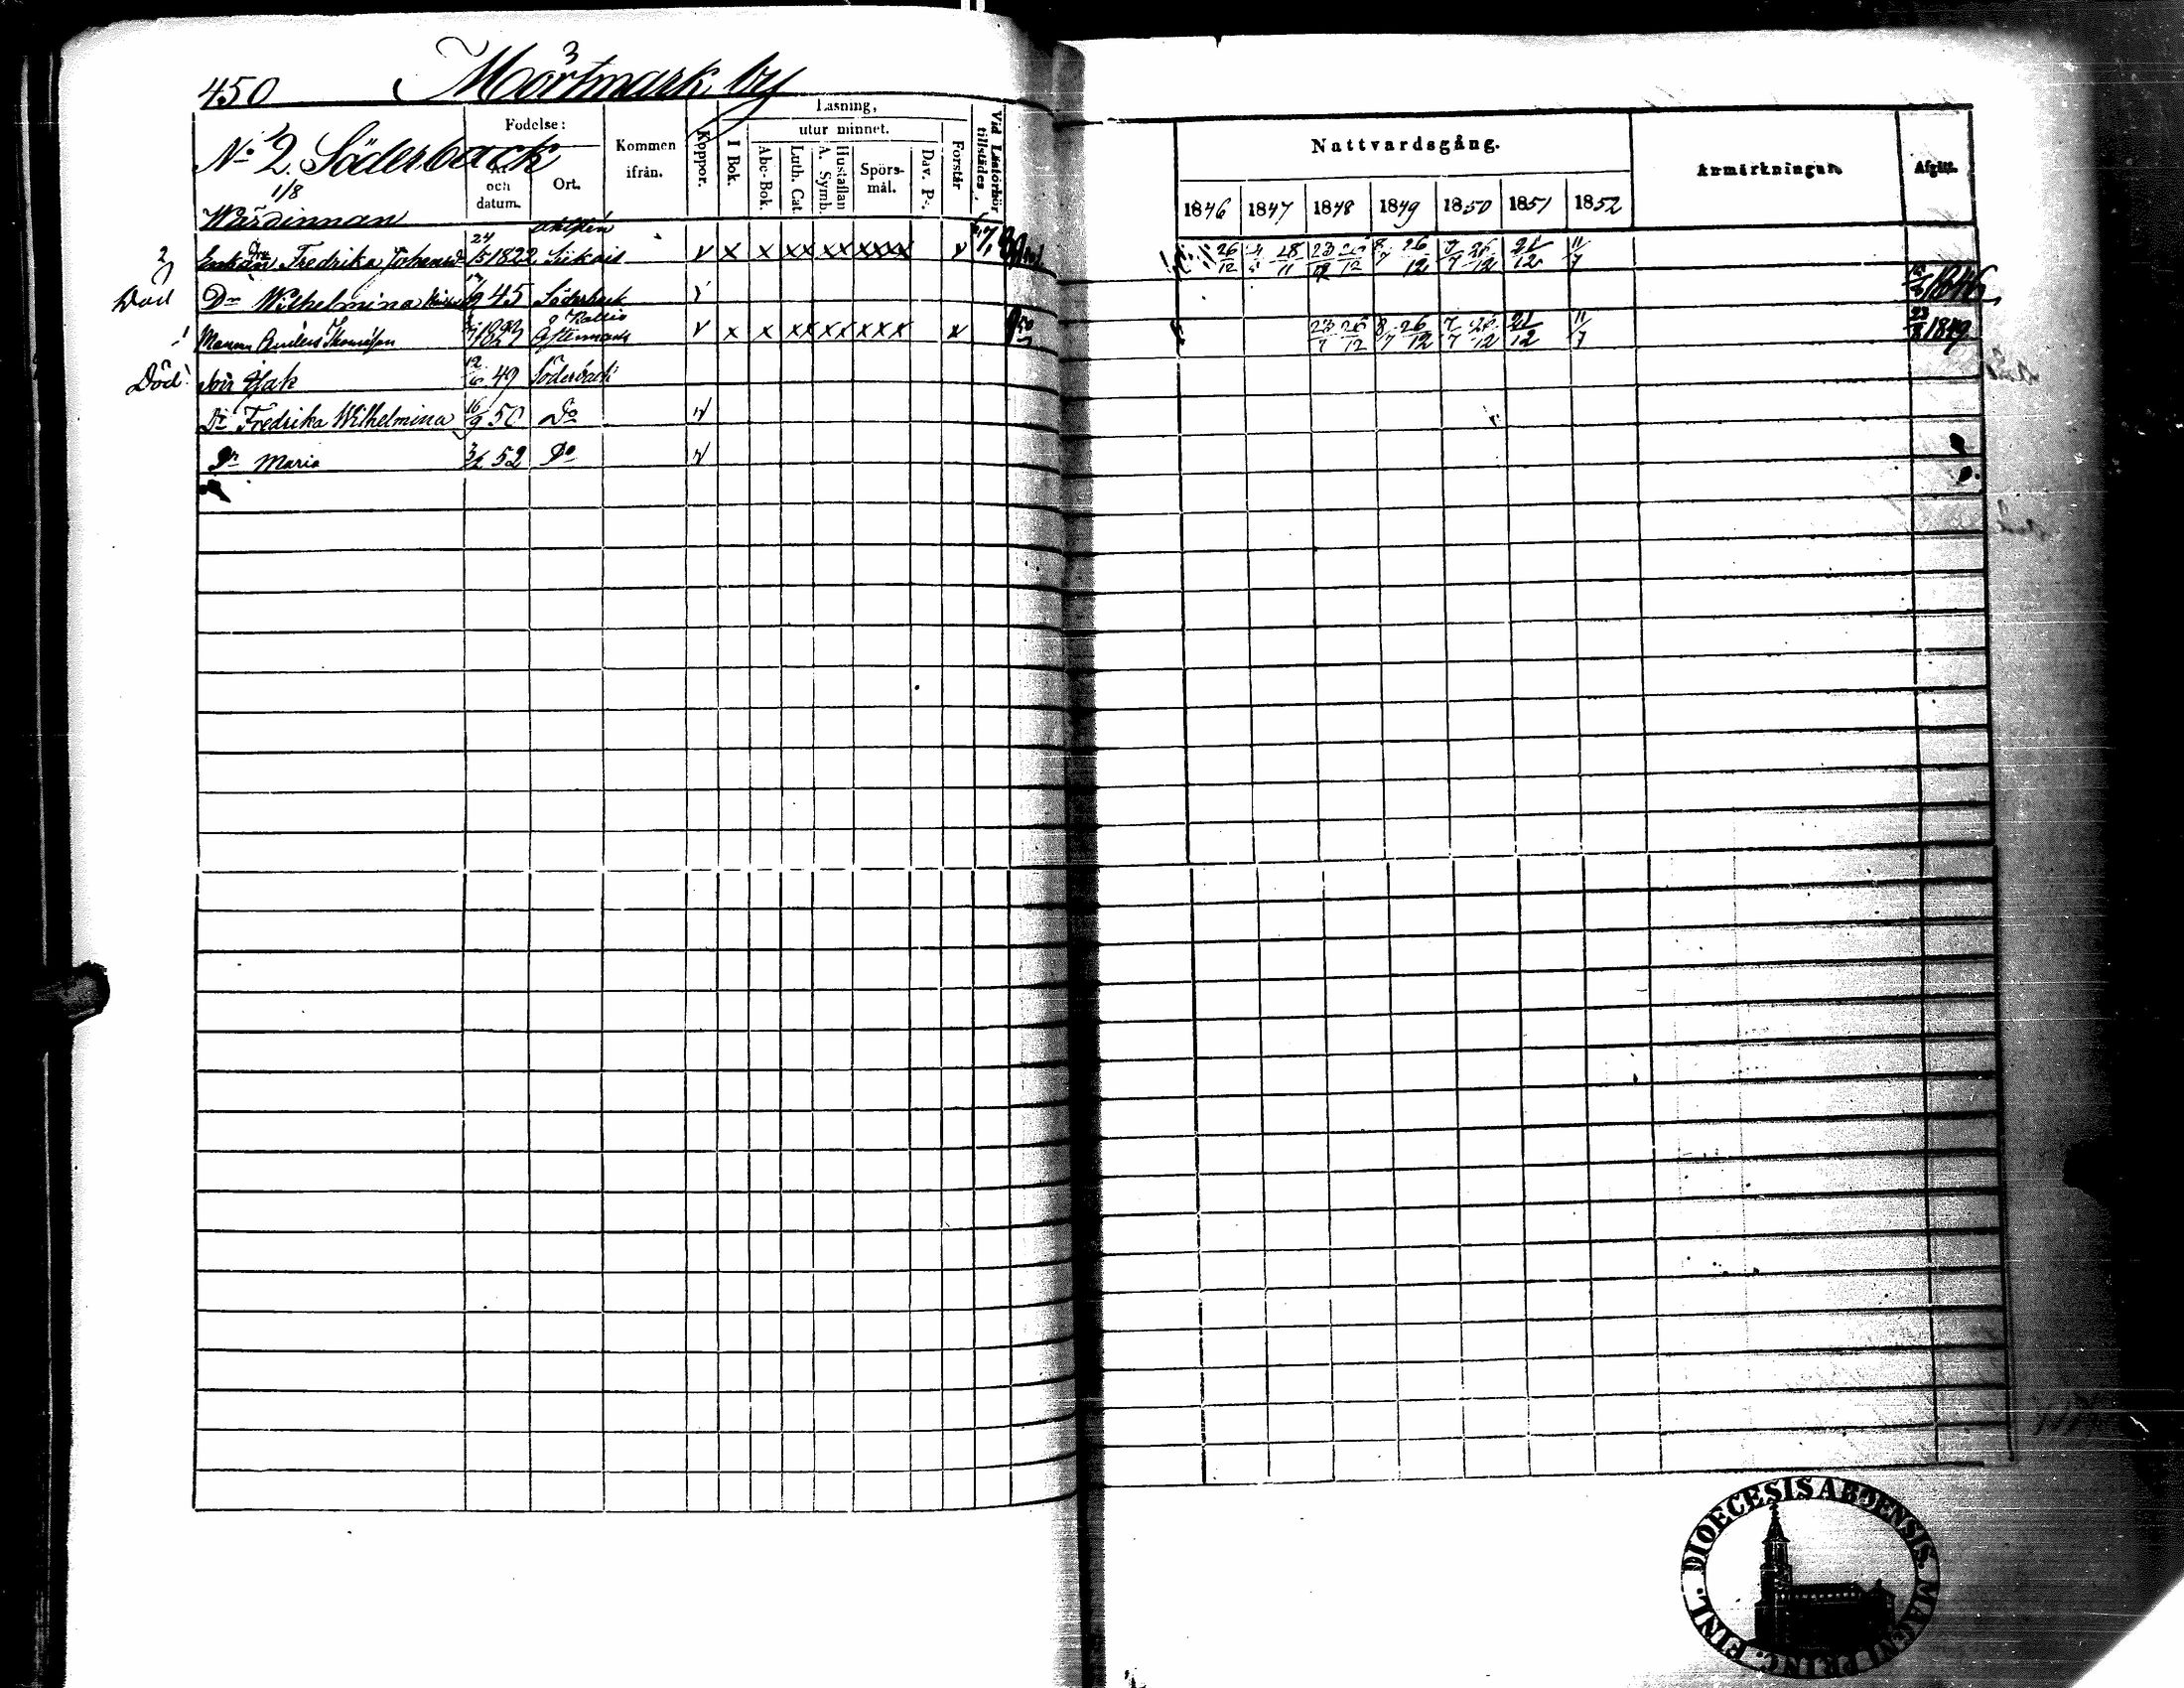 450 Mörtmark by
3
Läsning,
Födelse:
utur minnet.
No 2. Söderback
1/8
År och datum.
Ort.
Kommen ifrån.
Koppor.
I Bok.
Abc-Bok.
Luth. Cat.
A. Symb.
Hustaflan
Spörs-mål.
Dav. Ps.
Förstår
Vid Läsförhör tillstädes.
Nattvardsgång.
Anmärkningar.
Afgått.
1846 1847 1848 1849 1850 1851 1852
Wärdinnan
2 Fredrika 1822 V X X XX XX XXXX V 26/12 26/12 8/7 26/12 7/7 26/12 21/12 11/7
Död Dr Wilhelmina 45 Söderback 1846
1 Anders X X XX XX XXX 23/7 26/12 8/7 26/12 7/7 26/12 21/12 11/7 1849
Död! Son Isak 12/6 49 Söderback
Dr Fredrika Wilhelmina 16/9 50 Do V
Dr Maria 52 Do V
DIOECESIS ABOENSIS. MAGNI PRINC. FINL.